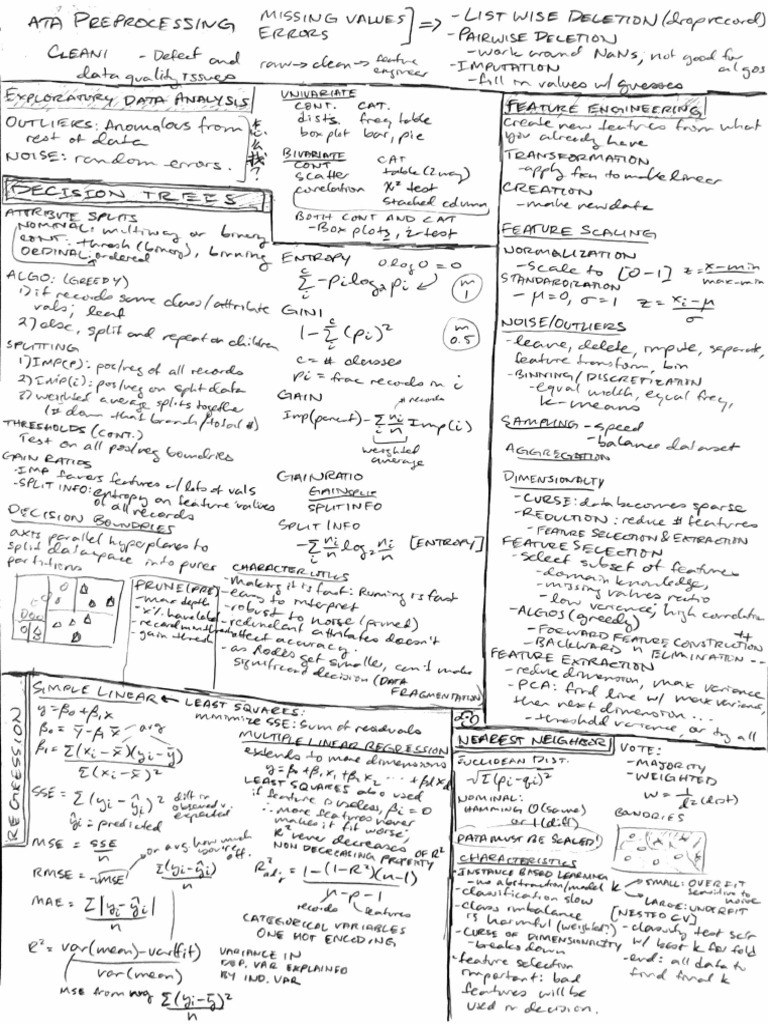 ATA PREPROCESSING
MISSING VALUES
ERRORS
⇒ - LIST WISE DELETION (drop record)
- PAIRWISE DELETION
- work around NaNs, not good for algos
- IMPUTATION
- fill in values w/ guesses
CLEANI - Defect and
data quality issues
raw → clean → feature
engineer
EXPLORATURY DATA ANALYSIS
OUTLIERS: Anomalous from
rest of data
NOISE: random errors.
UNIVARIATE
CONT. CAT.
dists. freq table
box plot bar, pie
BIVARIATE
CONT CAT
scatter table (2 way)
correlation χ² test
stacked column
BOTH CONT AND CAT
- Box plots, z-test
FEATURE ENGINEERING
create new features from what
you already have
TRANSFORMATION
- apply fxn to make linear
CREATION
- make new data
FEATURE SCALING
NORMALIZATION
- scale to [0-1] z = x-min / max-min
STANDARDIZATION
- μ=0, σ=1 z = xi-μ / σ
NOISE/OUTLIERS
- leave, delete, impute, separate,
feature transform, bin
- BINNING / DISCRETIZATION
- equal width, equal freq,
k-means
SAMPLING - speed
- balance dataset
AGGREGATION
DIMENSIONALTY
- CURSE: data becomes sparse
- REDUCTION: reduce # features
- FEATURE SELECTION & EXTRACTION
FEATURE SELECTION
- select subset of features
- domain knowledge,
- missing values ratio
- low variance, high correlation
- ALGOS (greedy)
- FORWARD FEATURE CONSTRUCTION ++
- BACKWARD " ELIMINATION --
FEATURE EXTRACTION
- reduce dimension, max variance
- PCA: find line w/ max variance,
then next dimension...
- threshold variance, or try all
DECISION TREES
ATTRIBUTE SPLITS
NOMINAL: multiway or binary
CONT: thresh (binary), binning
ORDINAL: ordered
ALGO: (GREEDY)
1) if records same class/attribute
vals; leaf
2) else, split and repeat on children
SPLITTING
1) IMP(P): pos/neg of all records
2) Imp(i): pos/neg on split data
3) weighted average splits together
(# down that branch/total #)
THRESHOLDS (CONT.)
Test on all pos/neg boundries
GAIN RATIOS
- IMP favers features w/ lots of vals
- SPLIT INFO: entropy on feature values
of all records
DECISION BOUNDRIES
axis parallel hyperplanes to
split dataspace into purer
partitions
ENTROPY 0 log 0 = 0
Σ -pi log₂ pi m 1
GINI
1 - Σ (pi)² m 0.5
c = # classes
pi = frac records in i
GAIN
# records
Imp(parent) - Σ ni/n Imp(i)
weighted
average
GAIN RATIO
GAINSPLIT
SPLITINFO
SPLIT INFO
- Σ ni/n log₂ ni/n [ENTROPY]
PRUNE (PRE)
- max depth
- x% have label
- record min thresh
- gain thresh
CHARACTERISTICS
- Making it is fast: Runing is fast
- easy to interpret
- robust to noise (pruned)
- redundant attributes doesn't
affect accuracy.
- as nodes get smaller, can't make
significant decision (DATA
FRAGMENTATION
REGRESSION
SIMPLE LINEAR ← LEAST SQUARES:
minimize SSE: sum of residuals
y = β0 + β1x
β0 = ȳ - β1x̄ avg
β1 = Σ(xi - x̄)(yi - ȳ)
Σ(xi - x̄)²
SSE = Σ(yi - ŷi)² diff in
observed v.
expected
ŷi = predicted
MSE = SSE / n
or avg how much
you're off.
RMSE = √MSE Σ(yi - ŷi) / n
MAE = Σ|yi - ŷi| / n
R² = var(mean) - var(fit)
var(mean)
MSE from avg Σ(yi - ȳ)² / n
MULTIPLE LINEAR REGRESSION
extends to more dimensions
y = β0 + β1x1 + β2x2 ... + βdxd
LEAST SQUARES also used
if feature is useless, βi = 0
∴ more features never
makes it fit worse,
R² never decreases
NON DECREASING PROPERTY of R²
R²adj = 1 - (1-R²)(n-1)
n - p - 1
records features
CATEGORICAL VARIABLES
ONE HOT ENCODING
VARIANCE IN
DEP. VAR EXPLAINED
BY IND. VAR
NEAREST NEIGHBOR
EUCLIDEAN DIST.
√Σ(pi - qi)²
NOMINAL:
HAMMING 0 (same)
or 1 (diff)
DATA MUST BE SCALED!
VOTE:
- MAJORITY
- WEIGHTED
w = 1 / d² (dist)
BONDRIES
CHARACTERISTICS
- INSTANCE BASED LEARNING
- no abstraction/model
- classification slow
- class imbalance
is harmful (weighted?)
- CURSE OF DIMENSIONALITY
- breaks down
- feature selection
important: bad
features will be
used in decision.
k SMALL: OVERFIT
sensitive to
noise
LARGE: UNDERFIT
[NESTED CV]
- classify test set
w/ best k for fold
- end: all data to
find final k